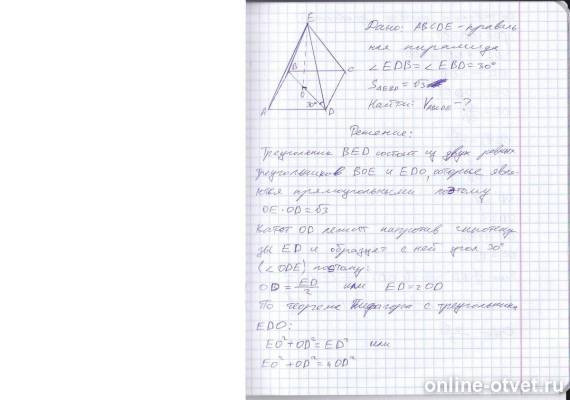 E
B
C
O
A
30°
D
Дано: ABCDE - правиль
ная пирамида
∠EDB = ∠EBD = 30°
S = √3
Найти: V - ?
Решение:
Треугольник BED состоит из двух равных
треугольников BOE и EDO, которые явл
ются прямоугольными поэтому
OE · OD = √3
Катет OD лежит напротив гипотену
зы ED и образует с ней угол 30°
(∠ODE) поэтому:
OD = ED/2 или ED = 2OD
По теореме Пифагора с треугольника
EDO:
EO² + OD² = ED² или
EO² + OD² = 4OD²
online-otvet.ru